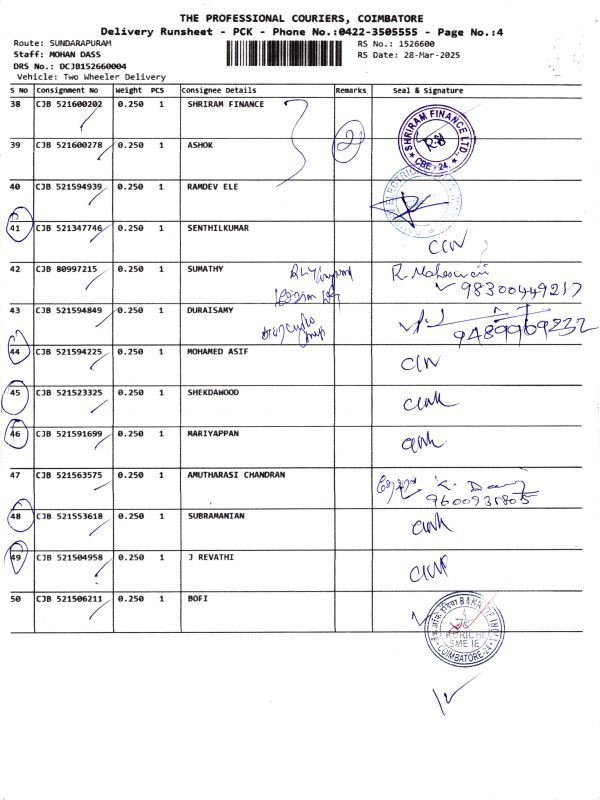 THE PROFESSIONAL COURIERS, COIMBATORE
Delivery Runsheet - PCK - Phone No.:0422-3505555 - Page No.:4
Route: SUNDARAPURAM RS No.: 1526600
Staff: MOHAN DASS RS Date: 28-Mar-2025
DRS No.: DCJB152660004
Vehicle: Two Wheeler Delivery
S No Consignment No Weight PCS Consignee Details Remarks Seal & Signature
38 CJB 521600202 0.250 1 SHRIRAM FINANCE
2
SHRIRAM FINANCE LTD.
CBE - 24.
39 CJB 521600278 0.250 1 ASHOK
40 CJB 521594939 0.250 1 RAMDEV ELE
41 CJB 521347746 0.250 1 SENTHILKUMAR
42 CJB 80997215 0.250 1 SUMATHY R. Maheswari
98300449217
43 CJB 521594849 0.250 1 DURAISAMY
9489969232
44 CJB 521594225 0.250 1 MOHAMED ASIF
45 CJB 521523325 0.250 1 SHEKDAWOOD
46 CJB 521591699 0.250 1 MARIYAPPAN
47 CJB 521563575 0.250 1 AMUTHARASI CHANDRAN
9600931805
48 CJB 521553618 0.250 1 SUBRAMANIAN
49 CJB 521504958 0.250 1 J REVATHI
50 CJB 521506211 0.250 1 BOFI
BANK OF INDIA
KURICHI
SME IE
COIMBATORE-24